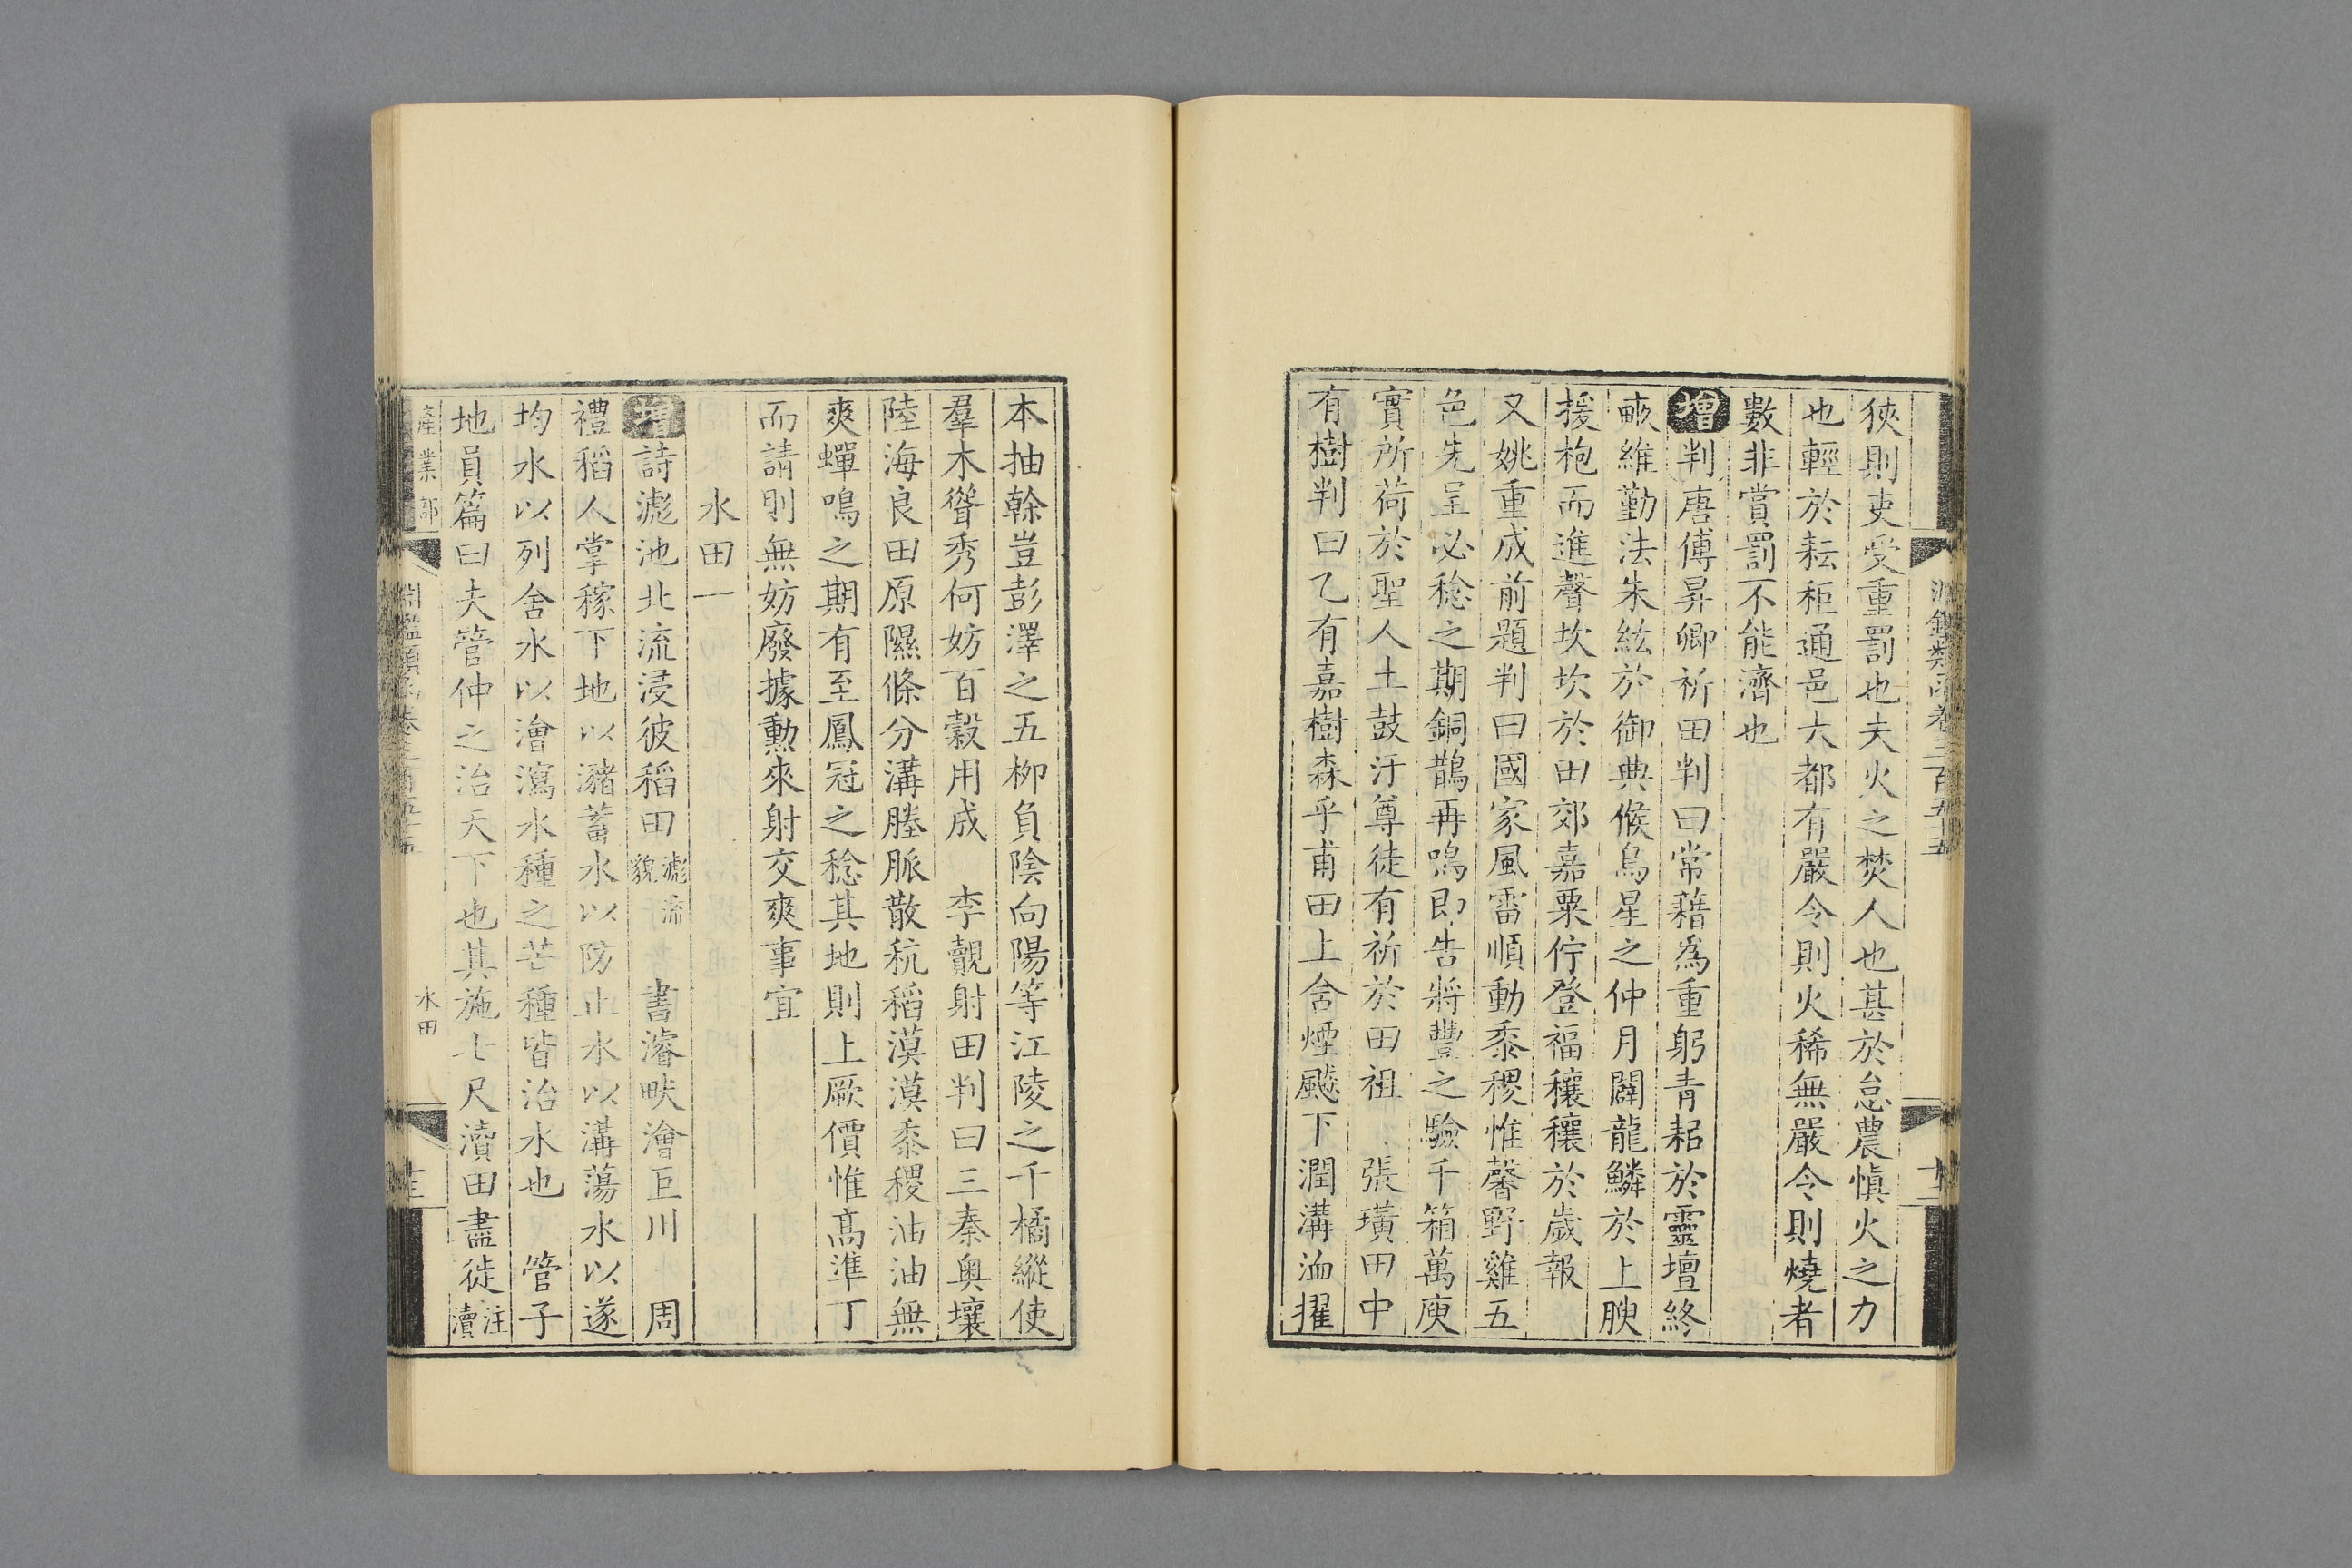 狹則吏受重罰也夫火之焚人也甚於怠農愼火之力
也輕於耘秬通邑大都有嚴令則火稀無嚴令則燒者
數非賞罰不能濟也
增判唐傅昇卿祈田判曰常藉爲重躬青耜於靈壇終
畝維勤法朱紘於御典候鳥星之仲月闢龍鱗於上腴
援枹而進聲坎坎於田郊嘉粟佇登福穰穰於歲報
又姚重成前題判曰國家風雷順動黍稷惟馨野雞五
色先呈必稔之期銅鵲再鳴即告將豐之驗千箱萬庾
實所荷於聖人土鼓汙尊徒有祈於田祖　張璜田中
有樹判曰乙有嘉樹森乎甫田上含煙颸下潤溝洫擢
本抽榦豈彭澤之五柳負陰向陽等江陵之千橘縱使
羣木聳秀何妨百穀用成　李覿射田判曰三秦奧壤
陸海良田原隰條分溝塍脈散秔稻漠漠黍稷油油無
爽蟬鳴之期有至鳳冠之稔其地則上厥價惟高準丁
而請則無妨廢據勳來射交爽事宜
水田一
增詩滮池北流浸彼稻田滮流貌　書濬畎澮距川　周
禮稻人掌稼下地以瀦蓄水以防止水以溝蕩水以遂
均水以列舍水以澮瀉水種之芒種皆治水也　管子
地員篇曰夫管仲之治天下也其施七尺瀆田盡徙注瀆
產業部
淵鑑類函卷三百五十五
水田